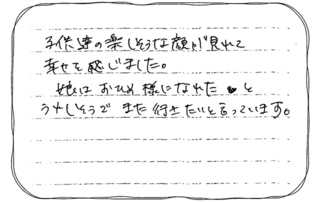 子供達の楽しそうな顔が見れて
幸せを感じました。
娘はおひめ様になれたと
うれしそうで また行きたいと言っています。